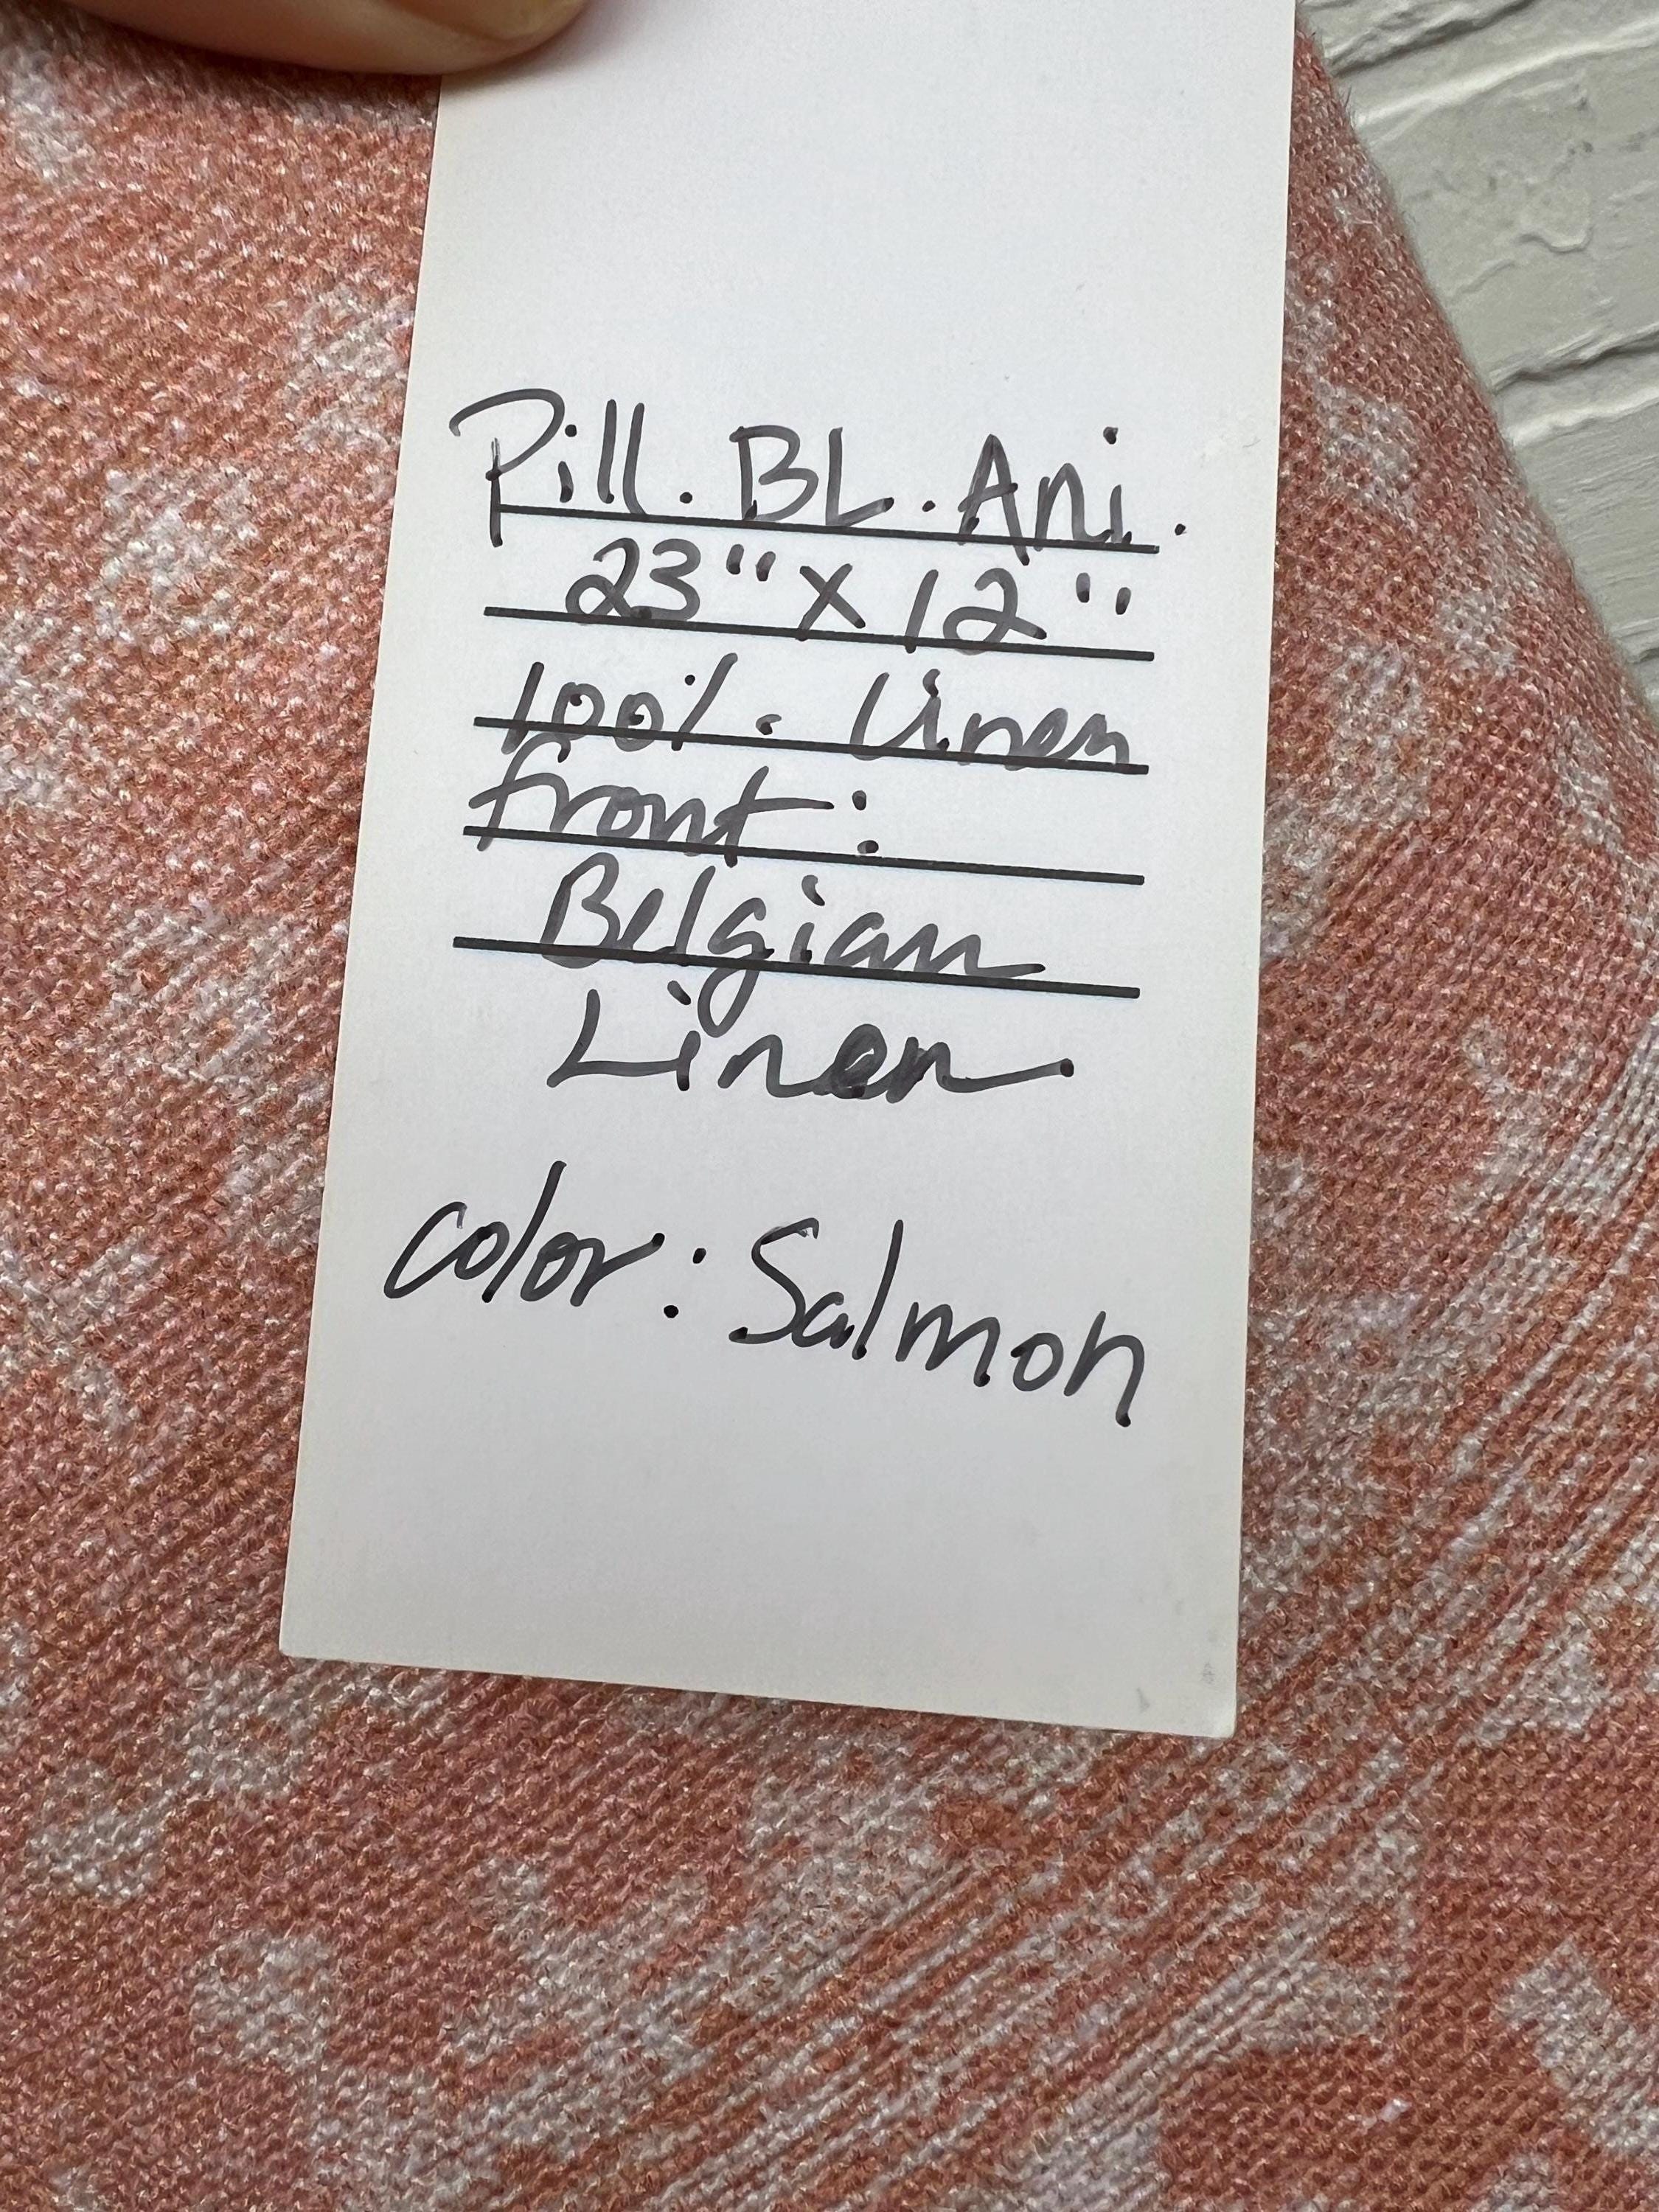 Pill. BL. Ani.
23" X 12"
100%. Linen
front:
Belgian
Linen
color: Salmon